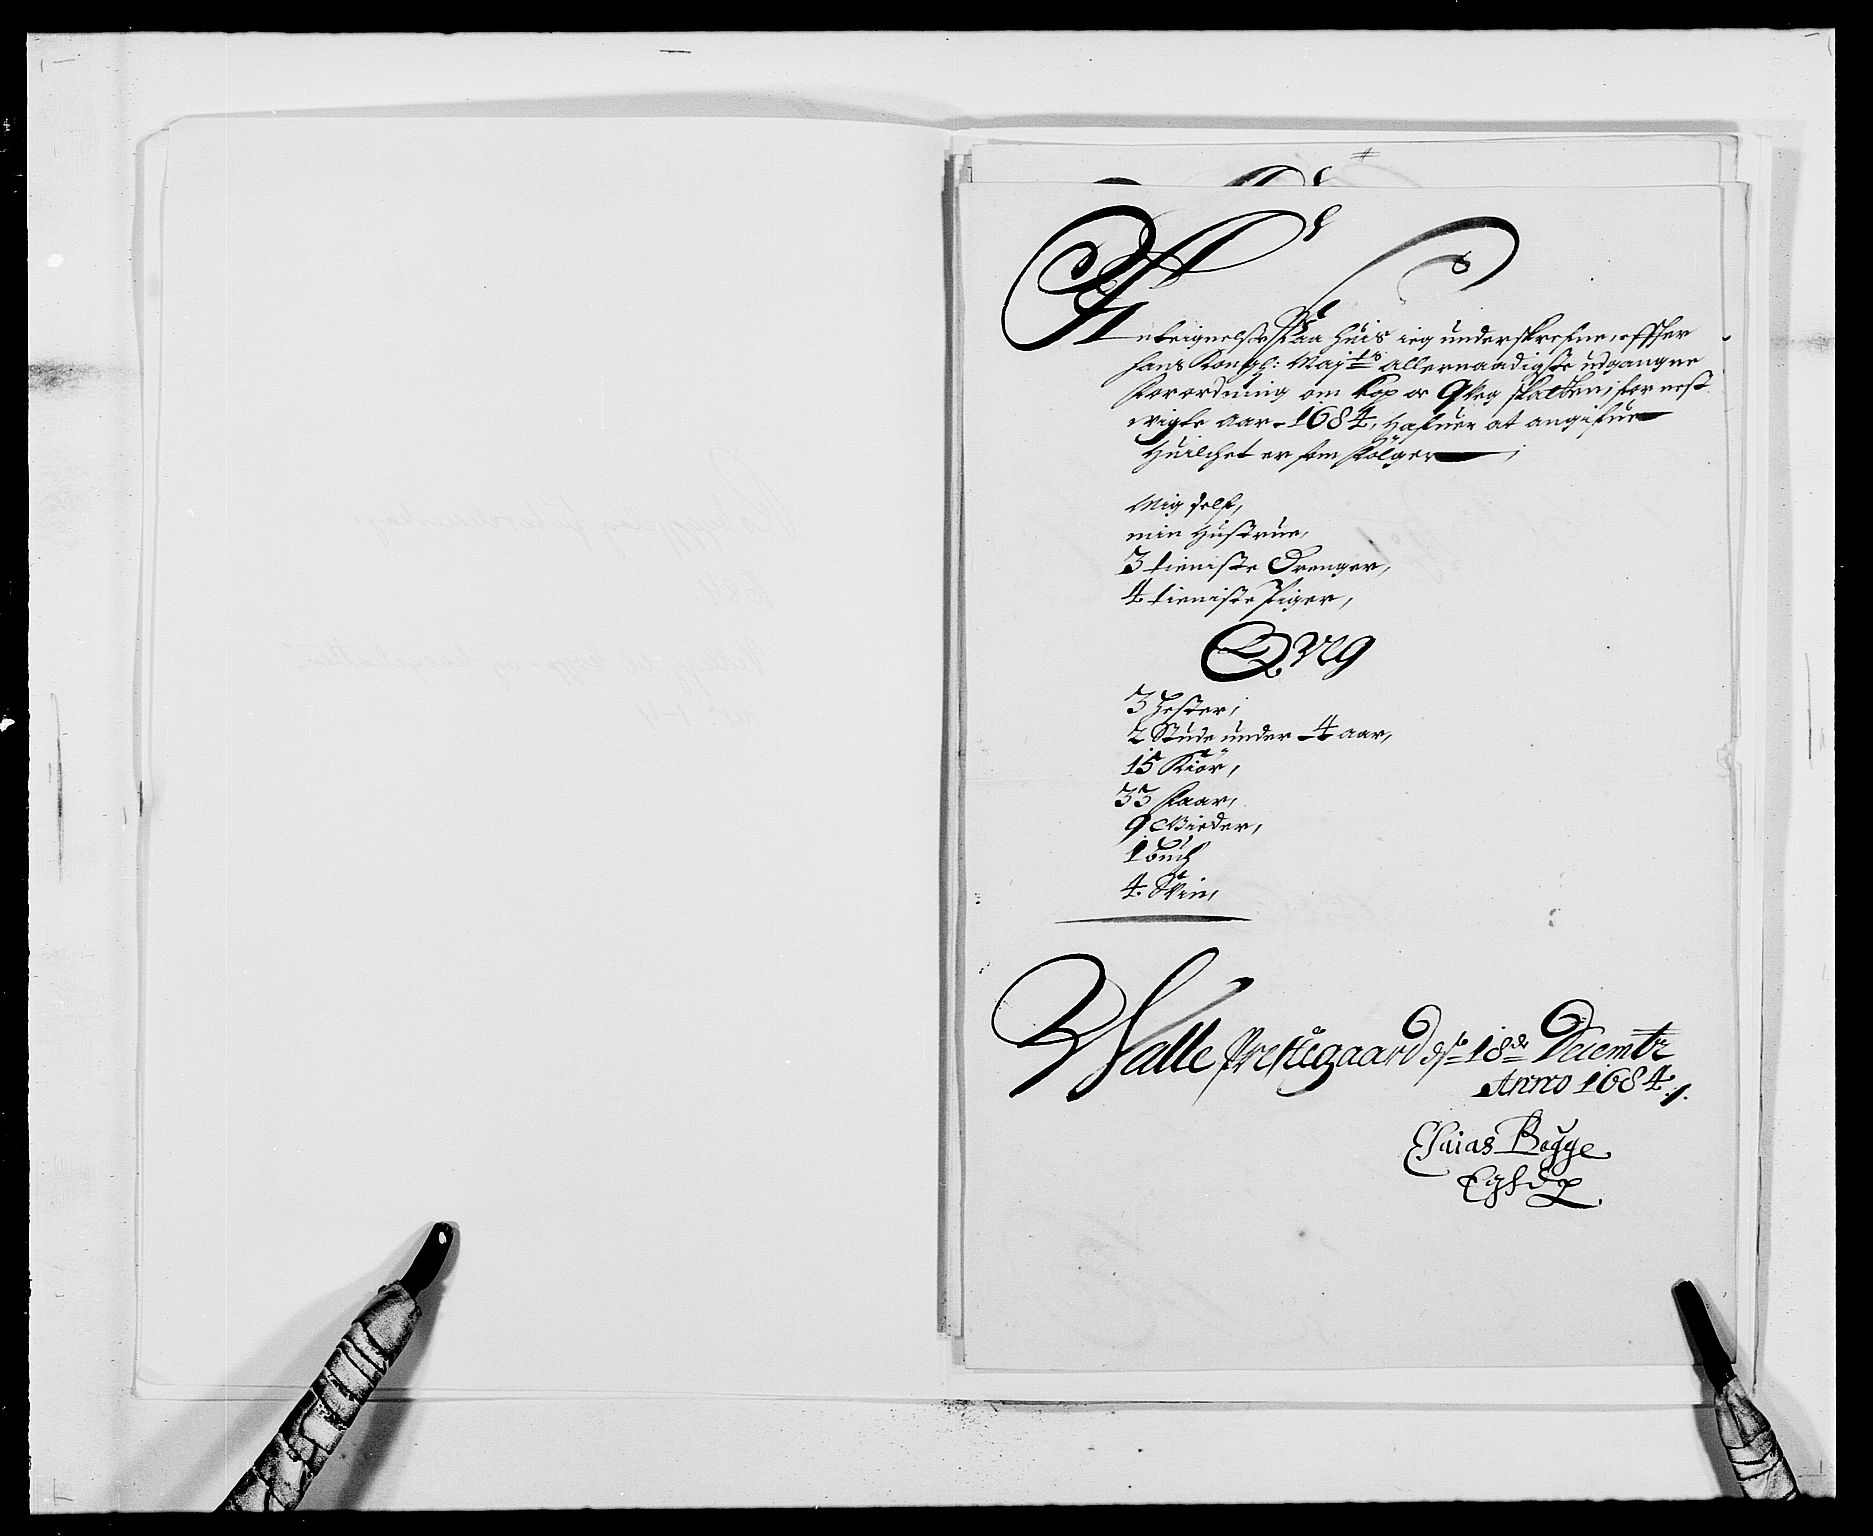 Anteignelse Paa huis ieg underskrefne, effter
hans Kongl: Maj:ts allernaadigste udgangne
Forordning om Kop oc Qveg skatten, for nest
Aar 1684, Hafuer at angifue
Huilchet er som følger
Mig self,
min Hustrue,
3 tieniste Drenger,
4 tieniste Piger,
Qveg
3 Hester,
2 Stude under 4 aar,
15 Kiør,
33 Faar,
9 Gieder,
1 buch
4 Svin,
Walle Prestegaard d. 18de Decembr
Anno 1684
Esaias Bugge
Eghdp